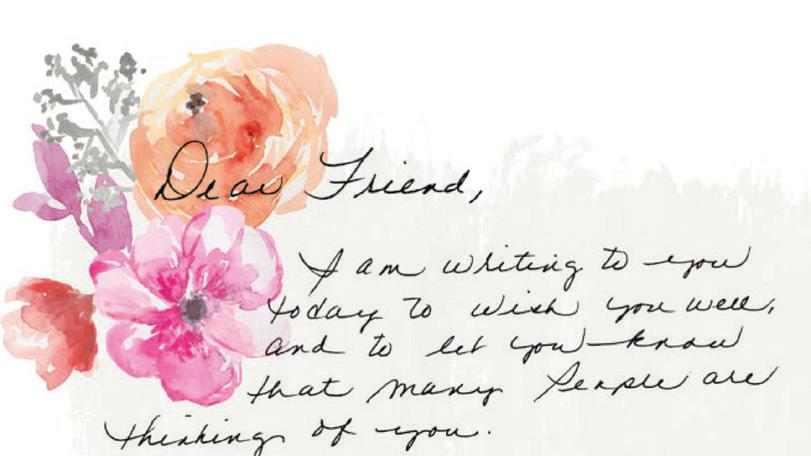 Dear Friend,
I am writing to you
today to wish you well,
and to let you know
that many People are
thinking of you.